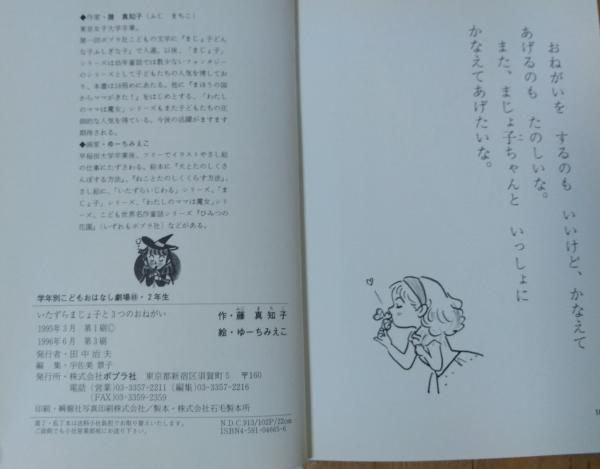 おねがいを するのも いいけど、かなえて
あげるのも たのしいな。
また、まじょ子ちゃんと いっしょに
かなえてあげたいな。
◆作家・藤 真知子(ふじ まちこ)
東京女子大学卒業。
第一回ポプラ社こどもの文学に『まじょ子どん
な子ふしぎな子』で入選。以後、「まじょ子」
シリーズは幼年童話では数少ないファンタジー
のシリーズとして子どもたちの人気を博してお
り、本書は18冊めにあたる。他に『まほうの国
からママがきた!』をはじめとする、「わたし
のママは魔女」シリーズもまた子どもたちの圧
倒的な人気を得ている。今後の活躍がますます
期待される。
◆画家・ゆーちみえこ
早稲田大学卒業後、フリーでイラストやさし絵
の仕事にたずさわる。絵本に『犬とたのしくさ
んぽする方法』、『ねことたのしくくらす方法』、
さし絵に、「いたずらいじわる」シリーズ、「ま
じょ子」シリーズ、「わたしのママは魔女」シリ
ーズ、こども世界名作童話シリーズ『ひみつの
花園』(いずれもポプラ社)などがある。
学年別こどもおはなし劇場・2年生
いたずらまじょ子と3つのおねがい
1995年3月 第1刷©
1996年6月 第3刷
作・藤 真知子
絵・ゆーちみえこ
発行者・田中治夫
編 集・宇佐美 景子
発行所・株式会社ポプラ社 東京都新宿区須賀町5 〒160
電話(営業)03-3357-2211 (編集)03-3357-2216
(FAX)03-3359-2359
印刷・瞬報社写真印刷株式会社/製本・株式会社石毛製本所
落丁・乱丁本は送料小社負担でお取り替えいたします。
ご面倒でも小社営業部宛にお送り下さい。
N.D.C.913/102P/22cm
ISBN4-591-04665-6